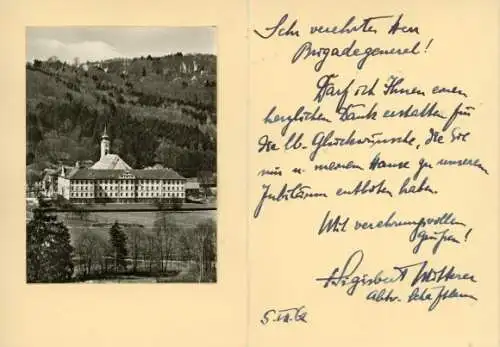 Sehr verehrter Herr
Brigadegeneral!
Darf ich Ihnen einen
herzlichen Dank erstatten für
die lb. Glückwünsche, die Sie
mir u. meinem Hause zu unserem
Jubiläum entboten haben.
Mit verehrungsvollen
Grüßen!
Sigisbert Mitterer
Abt v. Schäftlarn